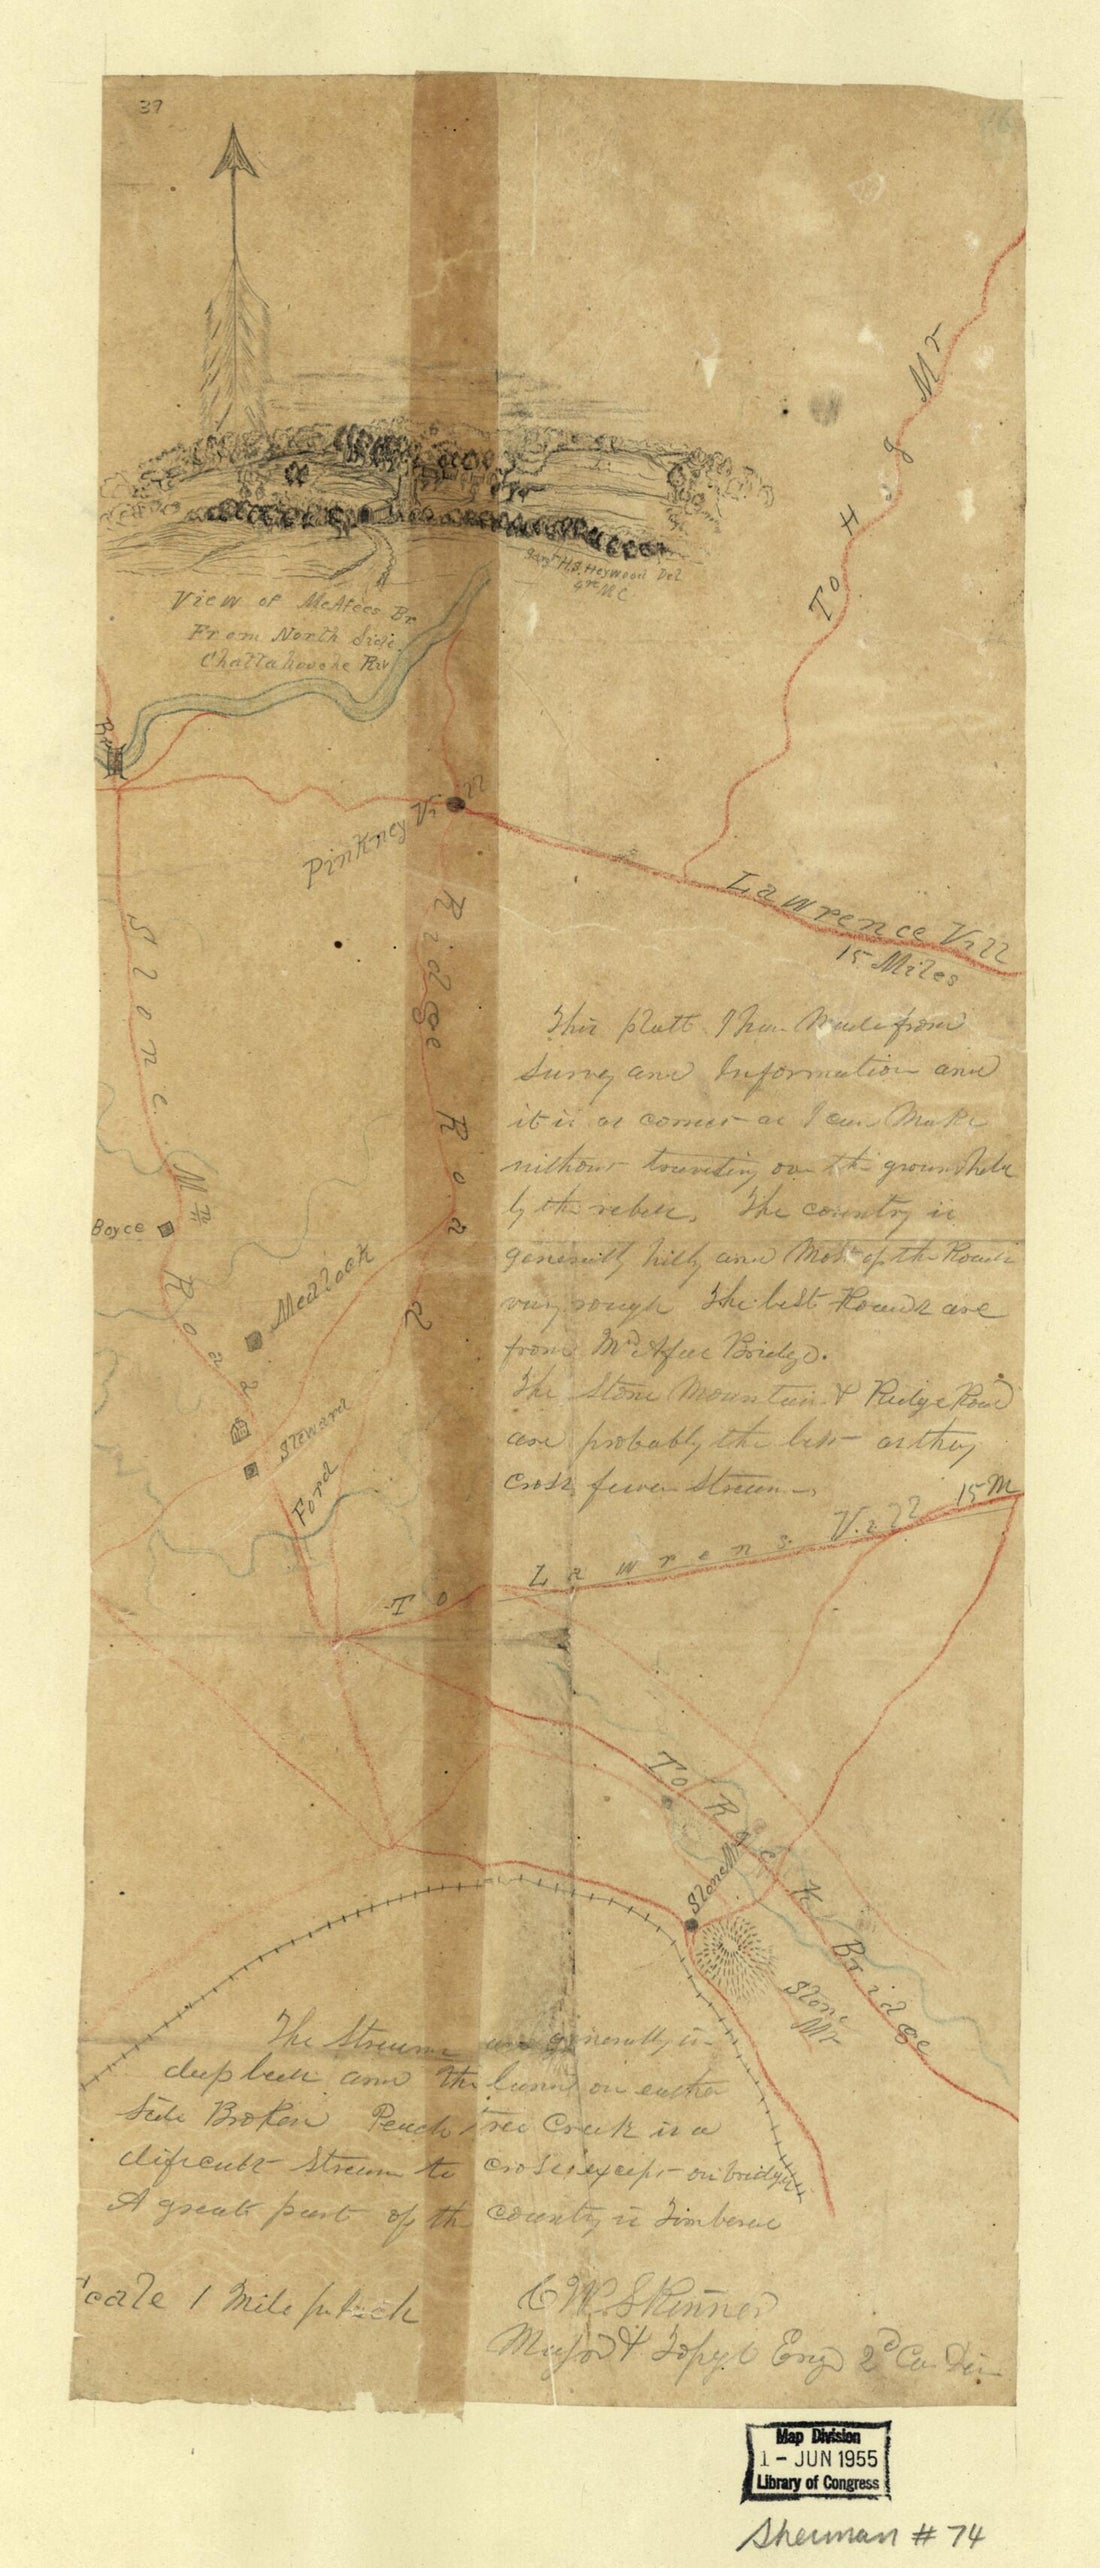 37
To Hog Mt
Sargt H.S. Heywood Del
View of McAfees Br
From North Side
Chattahooche Riv
Br
Pinkney Vill
Lawrence Vill
15 Miles
Ridge Road
Stone Mtn Road
This platt I have Made from
Survey and Information and
it is as correct as I can Make
without traveling over the ground held
by the rebels. The country is
generally hilly and Most of the Roads
very rough The best Roads are
from McAfee Bridge.
The Stone Mountain & Ridge Road
are probably the best as they
cross fewer Streams
Boyce
Medlock
Steward
Ford
To Lawrens Vill 15 M
To Rock Bridge
Stone Mt
Stone
Mt
The Streams are generally in
deep beds and the land on either
Side Broken Peach tree Creek is a
dificult Stream to cross except on bridges
A great part of the county is Timbered
Scale 1 Mile pr Inch
C W Skinner
Major & Topgl Eng 2d Ca Div
Map Division
1 - JUN 1955
Library of Congress
Sherman # 74